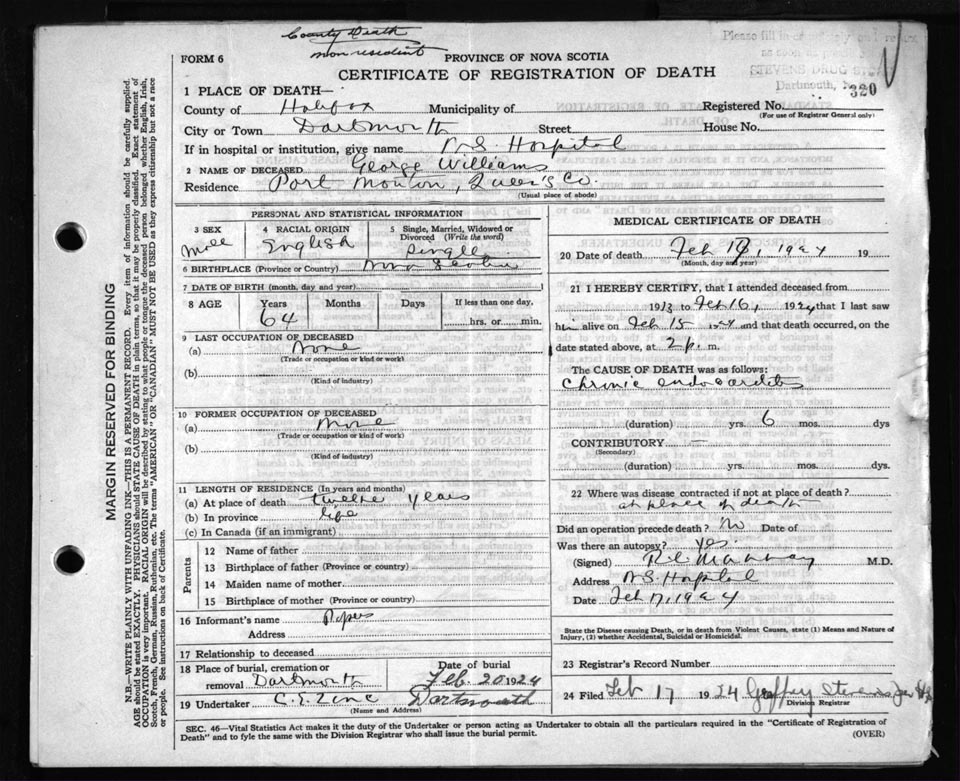 County Death
non resident
Please fill in
STEVENS DRUG
Dartmouth,
320
FORM 6
PROVINCE OF NOVA SCOTIA
CERTIFICATE OF REGISTRATION OF DEATH
1 PLACE OF DEATH—
County of Halifax Municipality of
Registered No.
(For use of Registrar General only)
City or Town Dartmouth Street House No.
If in hospital or institution, give name N.S. Hospital
2 NAME OF DECEASED George Williams
Residence Port Mouton, Queen's Co.
(Usual place of abode)
PERSONAL AND STATISTICAL INFORMATION
3 SEX
4 RACIAL ORIGIN
5 Single, Married, Widowed or Divorced (Write the word)
Male English Single
6 BIRTHPLACE (Province or Country) Nova Scotia
7 DATE OF BIRTH (month, day and year)
8 AGE Years Months Days If less than one day.
64 hrs. or min.
9 LAST OCCUPATION OF DECEASED
(a) None
(Trade or occupation or kind or work)
(b)
(Kind of industry)
10 FORMER OCCUPATION OF DECEASED
(a) None
(Trade or occupation or kind or work)
(b)
(Kind of industry)
11 LENGTH OF RESIDENCE (In years and months)
(a) At place of death twelve years
(b) In province life
(c) In Canada (if an immigrant)
Parents
12 Name of father
13 Birthplace of father (Province or country)
14 Maiden name of mother
15 Birthplace of mother (Province or country)
16 Informant's name
Address
17 Relationship to deceased
18 Place of burial, cremation or removal Dartmouth
Date of burial
Feb. 20 1924
19 Undertaker C.E. Zinc Dartmouth
(Name and Address)
MEDICAL CERTIFICATE OF DEATH
20 Date of death Feb 16, 1924 19
(Month, day and year)
21 I HEREBY CERTIFY, that I attended deceased from
1913 to Feb 16, 1924 that I last saw
him alive on Feb 15 1924 and that death occurred, on the
date stated above, at 2 p. m.
The CAUSE OF DEATH was as follows:
Chronic endocarditis
(duration) yrs. 6 mos. dys
CONTRIBUTORY —
(Secondary)
(duration) yrs. mos. dys.
22 Where was disease contracted if not at place of death?
at place of death
Did an operation precede death? No Date of
Was there an autopsy? yes.
(Signed) M.D.
Address N.S. Hospital
Date Feb 17, 1924
State the Disease causing Death, or in death from Violent Causes, state (1) Means and Nature of Injury, (2) whether Accidental, Suicidal or Homicidal.
23 Registrar's Record Number
24 Filed Feb 17 1924 Stevens
Division Registrar
SEC. 46—Vital Statistics Act makes it the duty of the Undertaker or person acting as Undertaker to obtain all the particulars required in the "Certificate of Registration of
Death" and to fyle the same with the Division Registrar who shall issue the burial permit.
(OVER)
MARGIN RESERVED FOR BINDING
N.B.—WRITE PLAINLY WITH UNFADING INK—THIS IS A PERMANENT RECORD. Every item of information should be carefully supplied.
AGE should be stated EXACTLY. PHYSICIANS should STATE CAUSE OF DEATH in plain terms, so that it may be properly classified. Exact statement of
OCCUPATION is very important. RACIAL ORIGIN will be described by stating to what people or tongue the deceased person belonged, whether English, Irish,
Scotch, French, German, Russian, Ruthenian, etc. The terms "AMERICAN" OR "CANADIAN" MUST NOT BE USED as they express citizenship but not a race
or people. See instructions on back of Certificate.